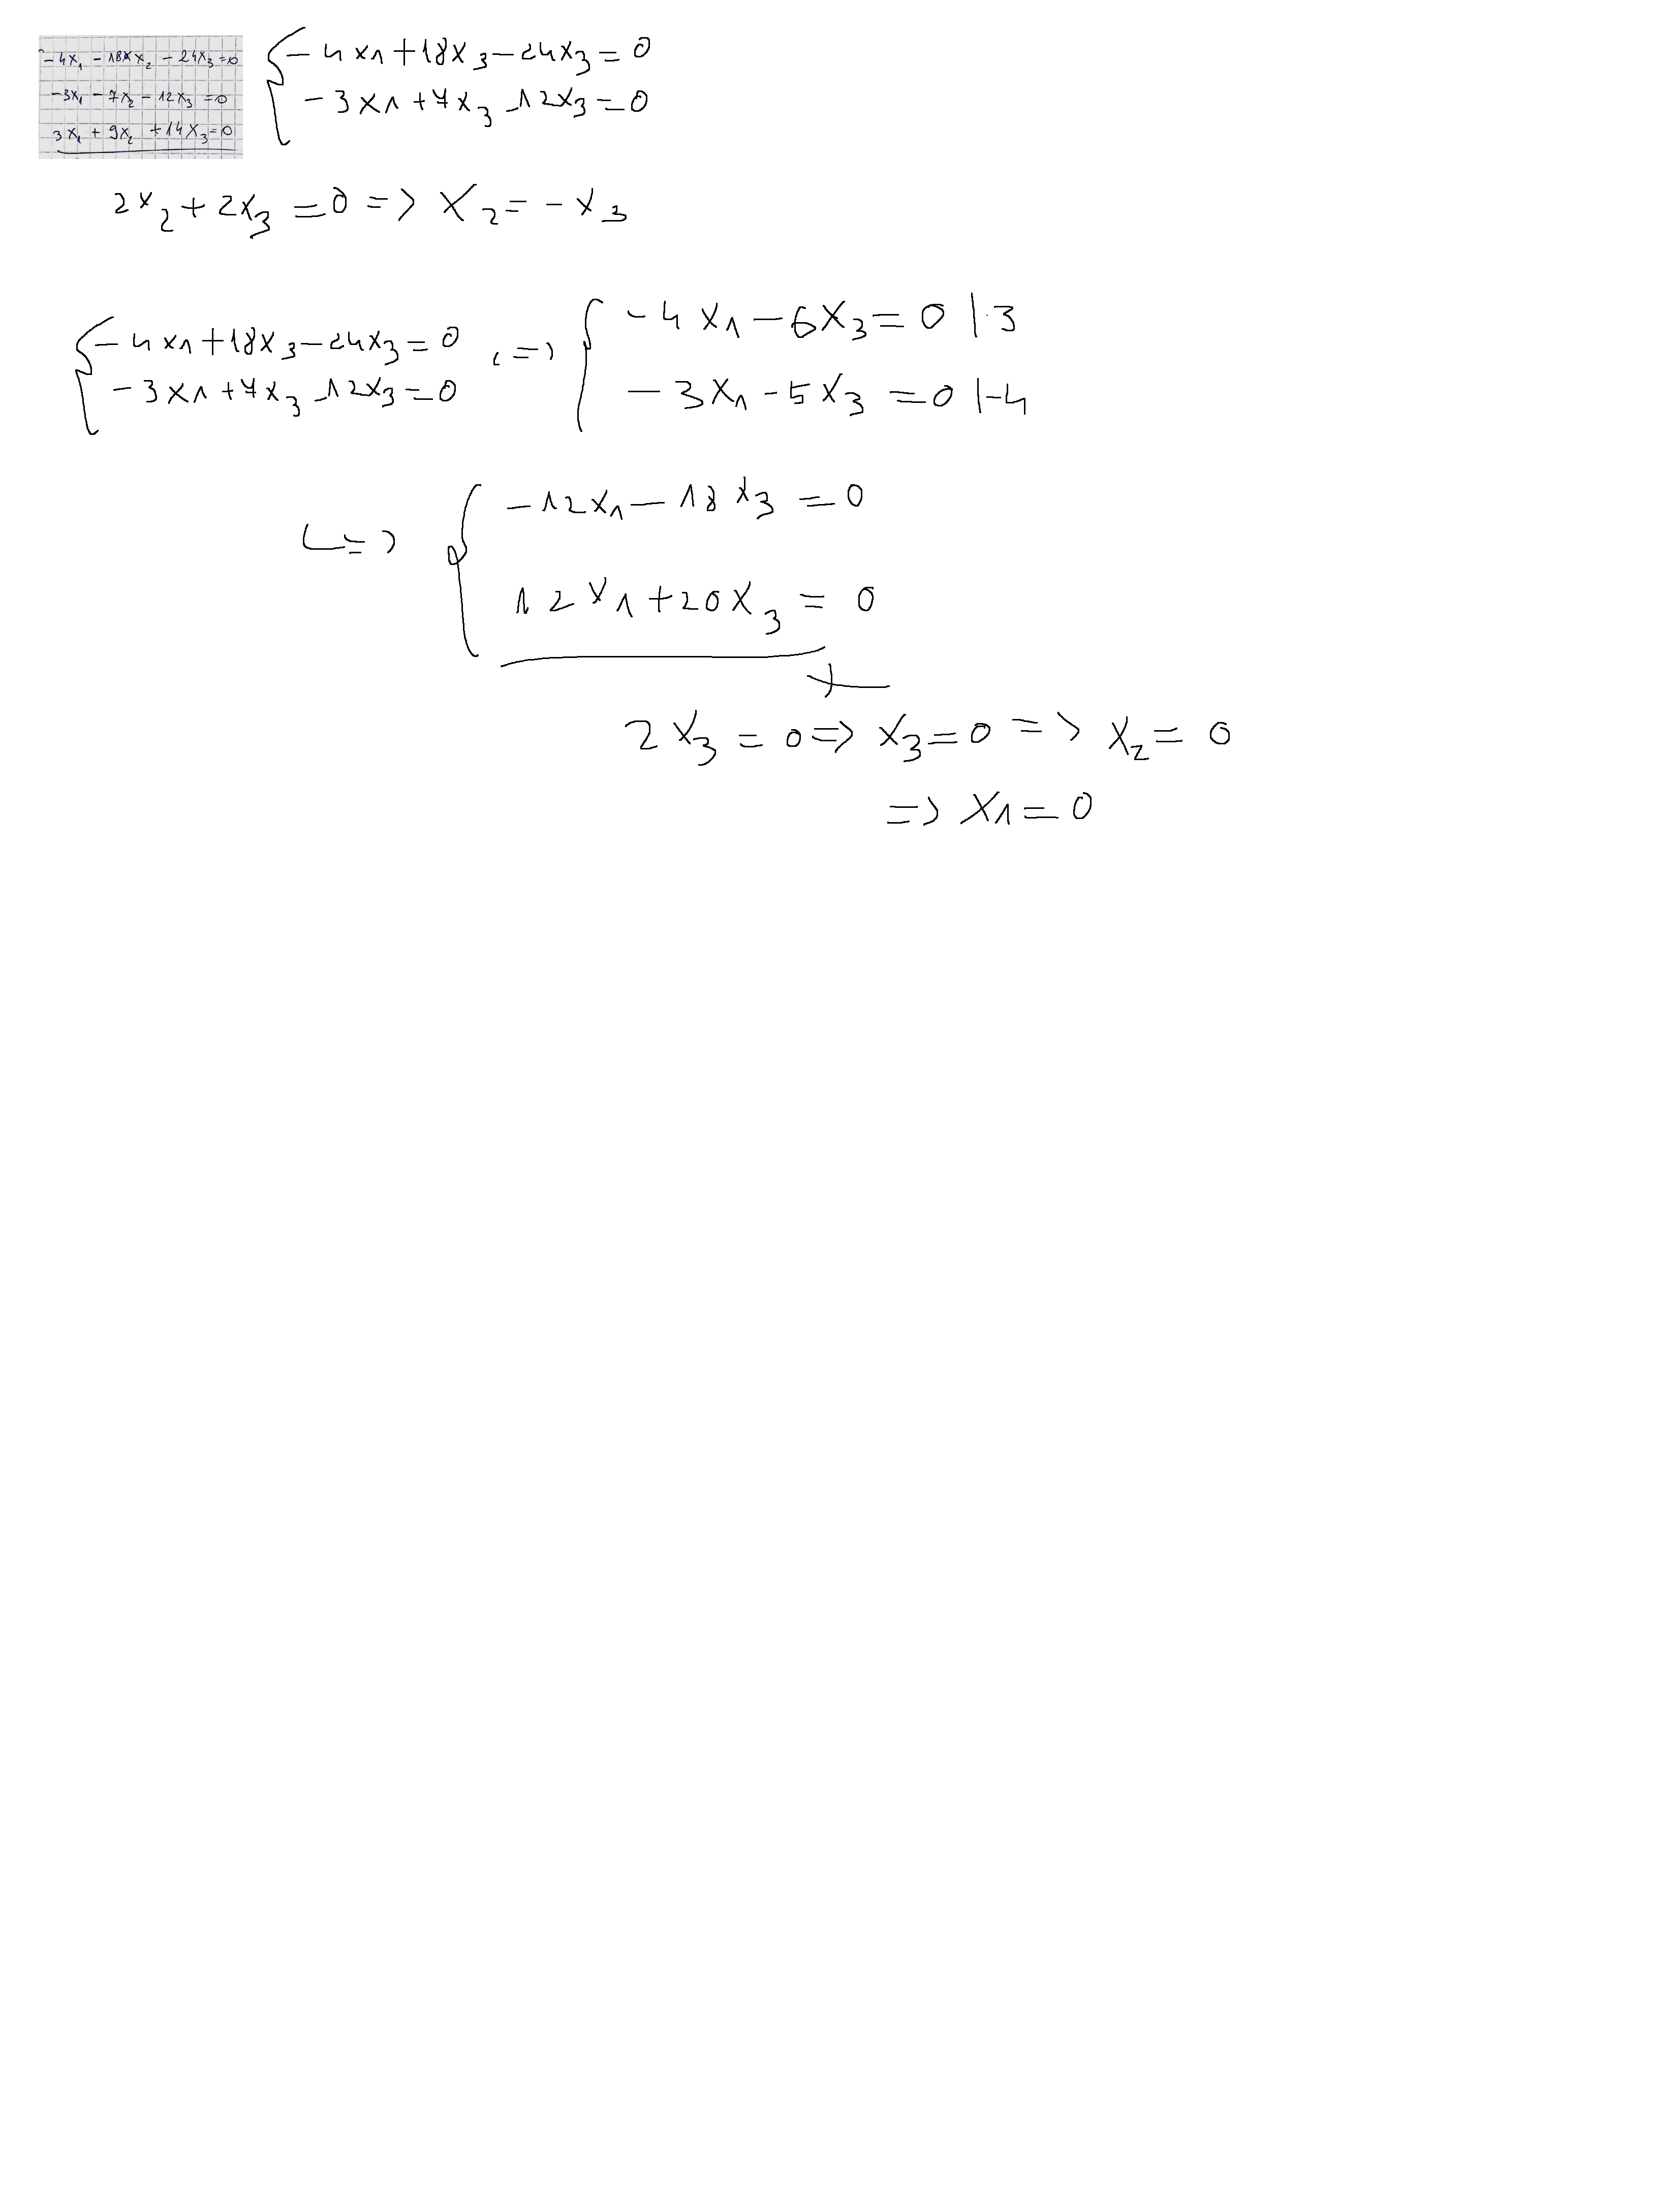 -4x₁ - 18x x₂ - 24x₃ = 0
-3x₁ - 7x₂ - 12x₃ = 0
3x₁ + 9x₂ + 14x₃ = 0
-4x1 + 18x₃ - 24x₃ = 0
-3x1 + 7x₃ - 12x₃ = 0
2x₂ + 2x₃ = 0 => x₂ = -x₃
-4x1 + 18x₃ - 24x₃ = 0 <=> -4x₁ - 6x₃ = 0 |·3
-3x1 + 7x₃ - 12x₃ = 0 -3x₁ - 5x₃ = 0 |-4
<=> -12x₁ - 18x₃ = 0
12x₁ + 20x₃ = 0
+
2x₃ = 0 => x₃ = 0 => x₂ = 0
=> x₁ = 0